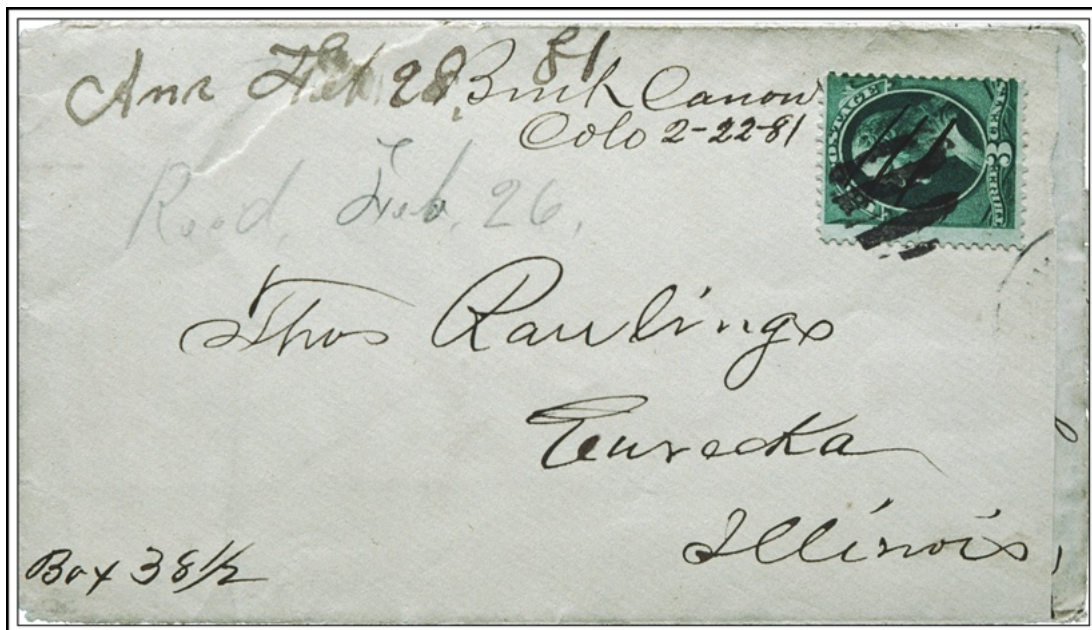 Ans Feb 28, 81
Bush Canon
Colo 2-22-81
POSTAGE
3
Recd, Feb. 26,
Thos Rawlings
Eurecka
Illinois,
Box 38½